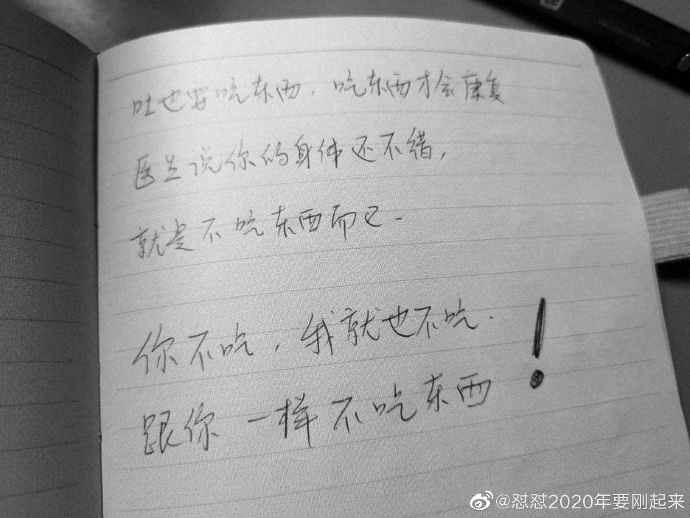 吐也要吃东西，吃东西才会康复
医生说你的身体还不错，
就是不吃东西而已.
你不吃，我就也不吃.
跟你一样不吃东西！
@怼怼2020年要刚起来